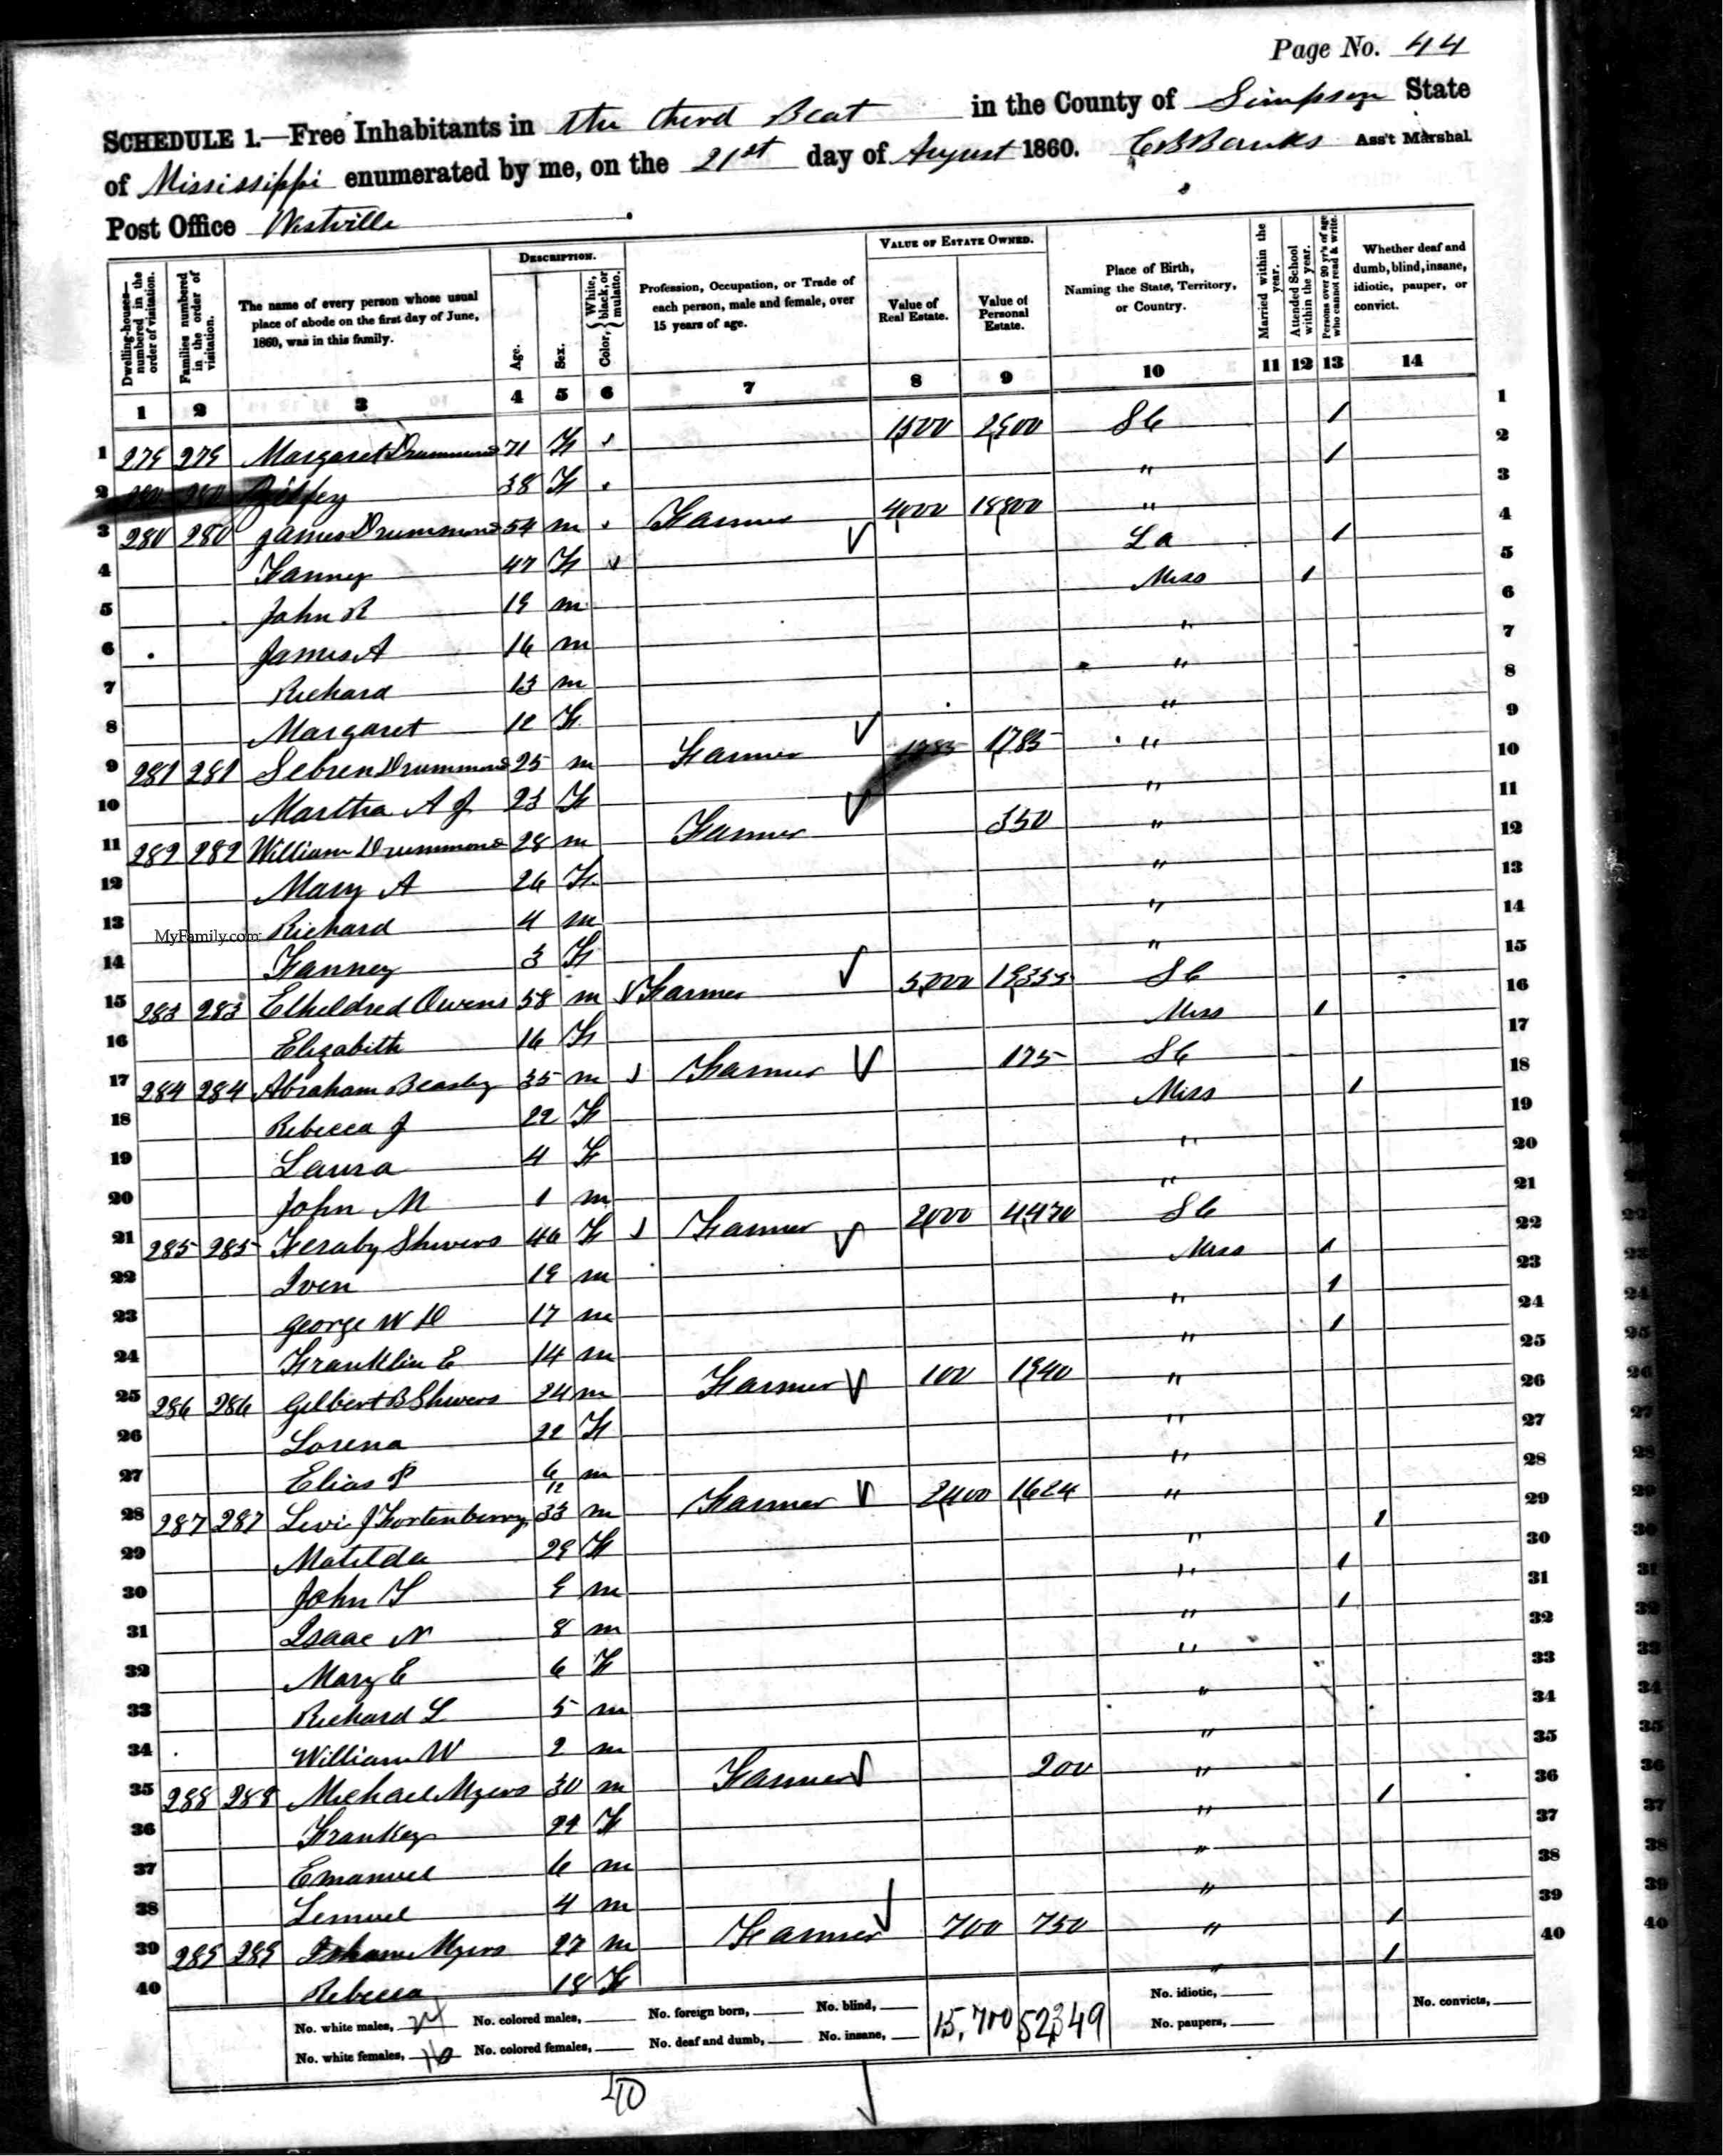 Page No. 44
SCHEDULE 1.—Free Inhabitants in the third Beat in the County of Simpson State
of Mississippi enumerated by me, on the 21st day of August 1860. C B Banks Ass't Marshal.
Post Office Westville
Dwelling-houses—numbered in the order of visitation.
Families numbered in the order of visitation.
The name of every person whose usual place of abode on the first day of June, 1860, was in this family.
DESCRIPTION.
Age.
Sex.
Color, { White, black, or mulatto.
Profession, Occupation, or Trade of each person, male and female, over 15 years of age.
VALUE OF ESTATE OWNED.
Value of Real Estate.
Value of Personal Estate.
Place of Birth, Naming the State, Territory, or Country.
Married within the year.
Attended School within the year.
Persons over 20 yr's of age who cannot read & write.
Whether deaf and dumb, blind, insane, idiotic, pauper, or convict.
1 2 3 4 5 6 7 8 9 10 11 12 13 14
1 279 279 Margaret Drummond 71 F 1,500 2,500 S C / 1
2 280 280 38 F " / 2
3 280 280 James Drummond 54 m Farmer 4,000 18,800 " 3
4 Fanney 47 F La / 4
5 John R 19 m Miss / 5
6 James A 16 m " 6
7 Richard 13 m " 7
8 Margaret 12 F " 8
9 281 281 Sebren Drummond 25 m Farmer 1785 1,785 " 9
10 Martha A J 23 F " 10
11 282 282 William Drummond 28 m Farmer 350 " 11
12 Mary A 26 F " 12
13 Richard 4 m " 13
MyFamily.com
14 Fanney 3 F " 14
15 283 283 Etheldred Owens 58 m Farmer 5,000 19,355 S C 15
16 Elizabeth 16 F Miss / 16
17 284 284 Abraham Beasley 35 m Farmer 175 S C 17
18 Rebecca J 22 F Miss / 18
19 Laura 4 F " 19
20 John M 1 m " 20
21 285 285 Feraby Shivers 46 F Farmer 2,000 4,470 S C 21
22 Iven 19 m Miss / 22
23 George W D 17 m " / 23
24 Franklin E 14 m " / 24
25 286 286 Gilbert B Shivers 24 m Farmer 100 1,940 " 25
26 Lorena 22 F " 26
27 Elias P 6/12 m " 27
28 287 287 Levi J Fortenberry 33 m Farmer 2,400 1,624 " 28
29 Matilda 29 F " / 29
30 John F 9 m " / 30
31 Isaac N 8 m " / 31
32 Mary E 6 F " 32
33 Richard L 5 m " 33
34 William W 2 m " 34
35 288 288 Michael Myers 30 m Farmer 200 " 35
36 Frankey 24 F " / 36
37 Emanuel 6 m " 37
38 Lemuel 4 m " 38
39 289 289 Myers 27 m Farmer 700 750 " / 39
40 Rebecca 18 F " / 40
No. white males, 24 No. colored males, No. foreign born, No. blind, 15,700 52,349 No. idiotic, No. convicts,
No. white females, 16 No. colored females, No. deaf and dumb, No. insane, No. paupers,
40